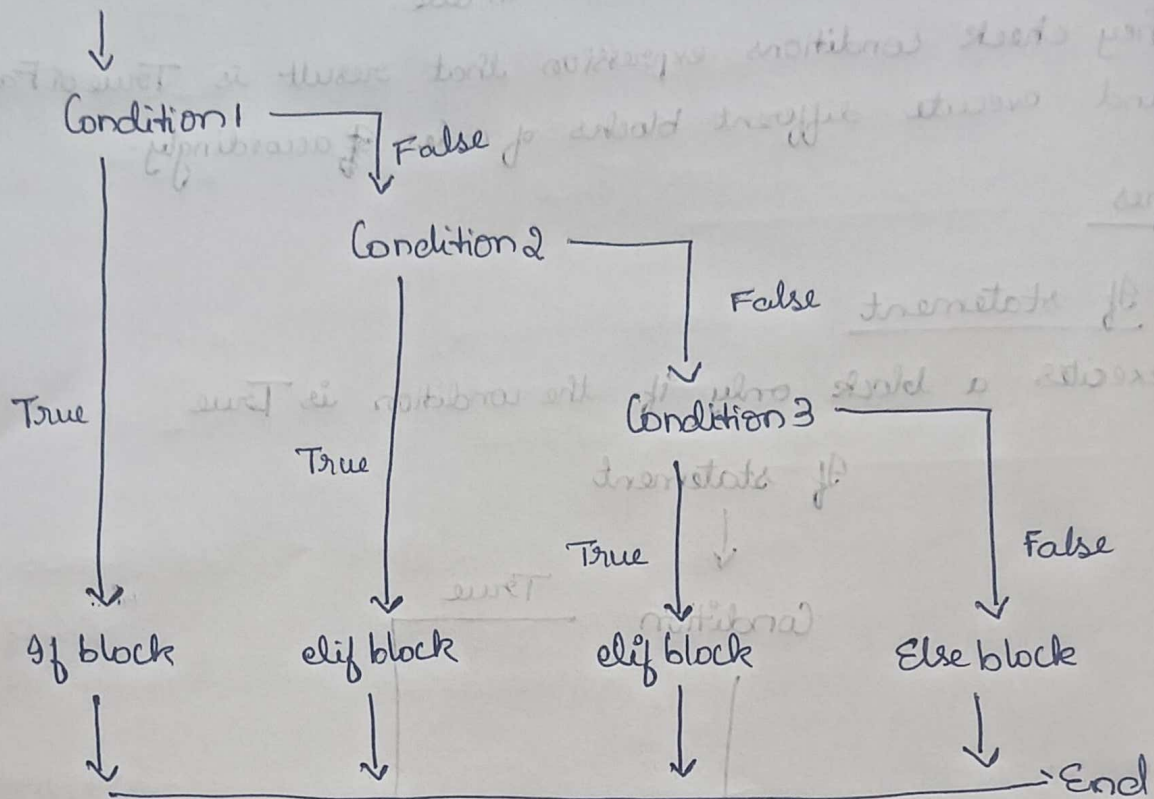 Condition 1
False
Condition 2
False
True
Condition 3
True
True
False
If block
elif block
elif block
Else block
End